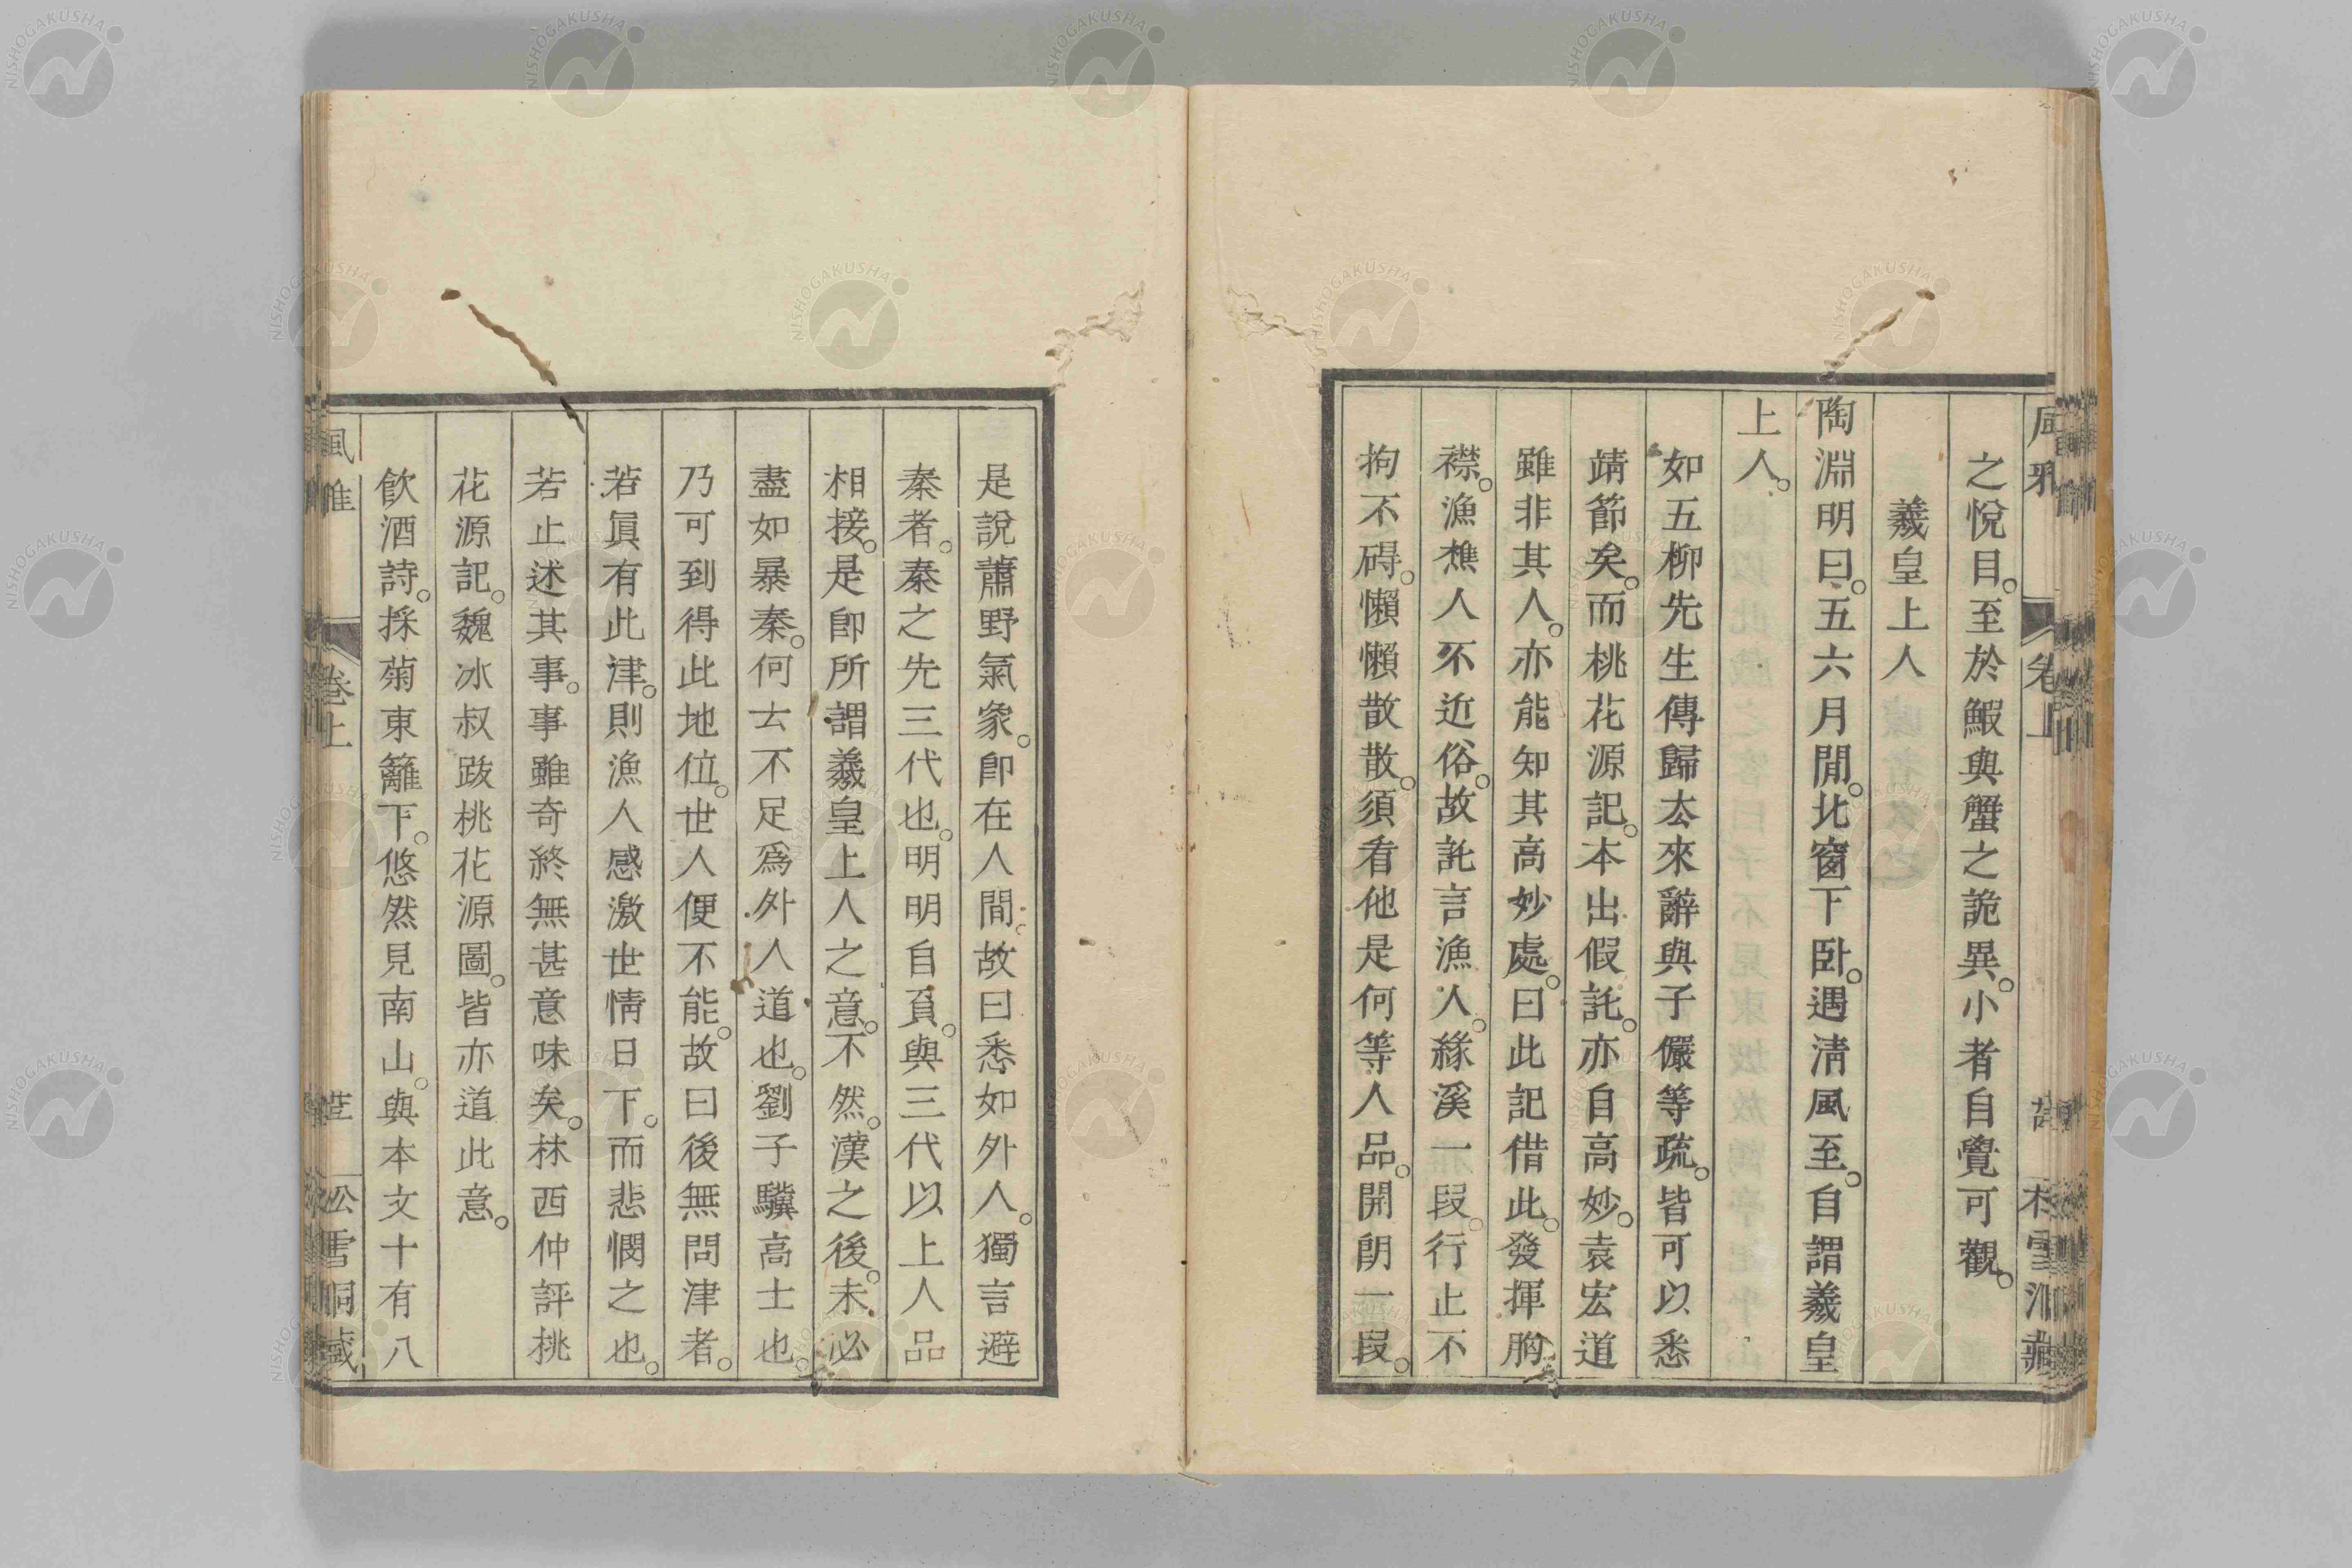 之悅目。至於鰕與蟹之詭異。小者自覺可觀。
羲皇上人
陶淵明曰。五六月閒。北窗下臥。遇淸風至。自謂羲皇
上人。
如五柳先生傳歸去來辭與子儼等疏。皆可以悉
靖節矣。而桃花源記。本出假託。亦自高妙。袁宏道
雖非其人。亦能知其高妙處。曰此記借此。發揮胸
襟。漁樵人不近俗。故託言漁人。緣溪一段。行止不
拘不碍。懶懶散散。須看他是何等人品。開朗一段。
是說蕭野氣象。卽在人間。故曰悉如外人。獨言避
秦者。秦之先三代也。明明自負。與三代以上人品
相接。是卽所謂羲皇上人之意。不然。漢之後。未必
盡如暴秦。何云不足爲外人道也。劉子驥高士也。
乃可到得此地位。世人便不能。故曰後無問津者。
若眞有此津。則漁人感激世情日下。而悲憫之也。
若止述其事。事雖奇終無甚意味矣。林西仲評桃
花源記。魏冰叔跋桃花源圖。皆亦道此意。
飮酒詩。採菊東籬下。悠然見南山。與本文十有八
卷上
NISHOGAKUSHA